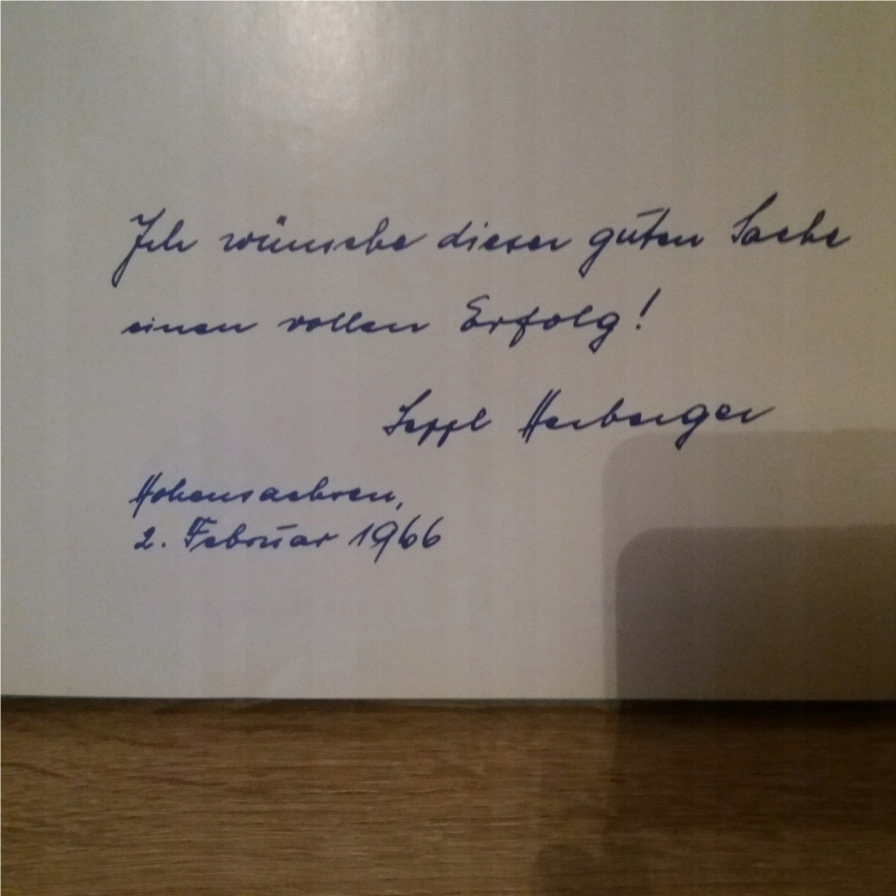 Ich wünsche dieser guten Sache
einen vollen Erfolg!
Seppl Herberger
Hohensachsen,
2. Februar 1966